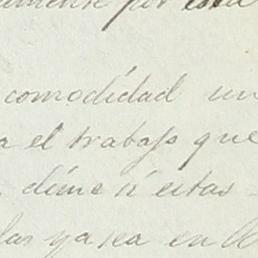 por esta
comodidad un
a el trabajo que
dime si estas
las ya sea en el